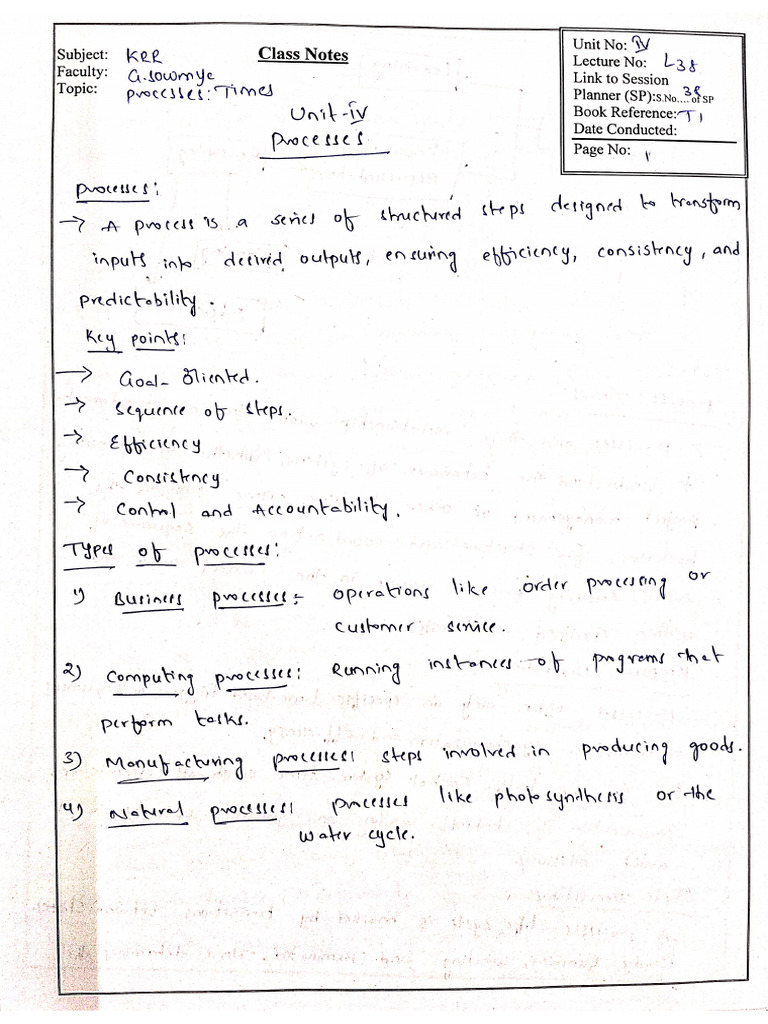 Subject: KRR
Class Notes
Faculty: G. Sowmya
Topic: Processes: Times
Unit No: IV
Lecture No: L38
Link to Session
Planner (SP):S.No.... 38 of SP
Book Reference: T1
Date Conducted:
Page No: 1
Unit-IV
Processes
Processes:
→ A process is a series of structured steps designed to transform
inputs into desired outputs, ensuring efficiency, consistency, and
predictability.
Key points:
→ Goal-Oriented.
→ Sequence of steps.
→ Efficiency
→ Consistency
→ Control and Accountability.
Types of processes:
1) Business processes:- operations like order processing or
customer service.
2) Computing processes: Running instances of programs that
perform tasks.
3) Manufacturing processes: steps involved in producing goods.
4) Natural processes: processes like photosynthesis or the
water cycle.